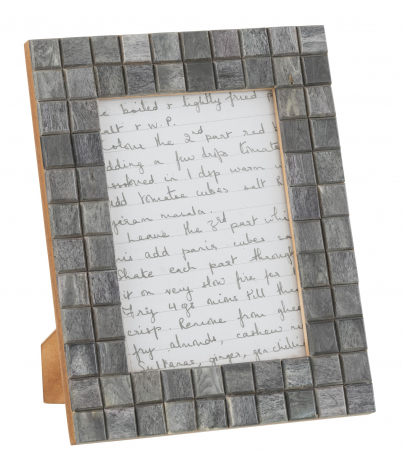 e boiled & lightly fried p
alt & W.P.
olour the 2nd part red b
dding a few drps tomato
ssolved in 1 dsp warm
dd tomatoe cubes salt &
garam masala.
Leave the 3rd part whi
us add panir cubes sa
Shake each part through
it on very slow fire for
Fry 4 gs onions till the
crisp. Remove from ghe
fry almonds, cashew n
Sultanas, ginger, gn chilli